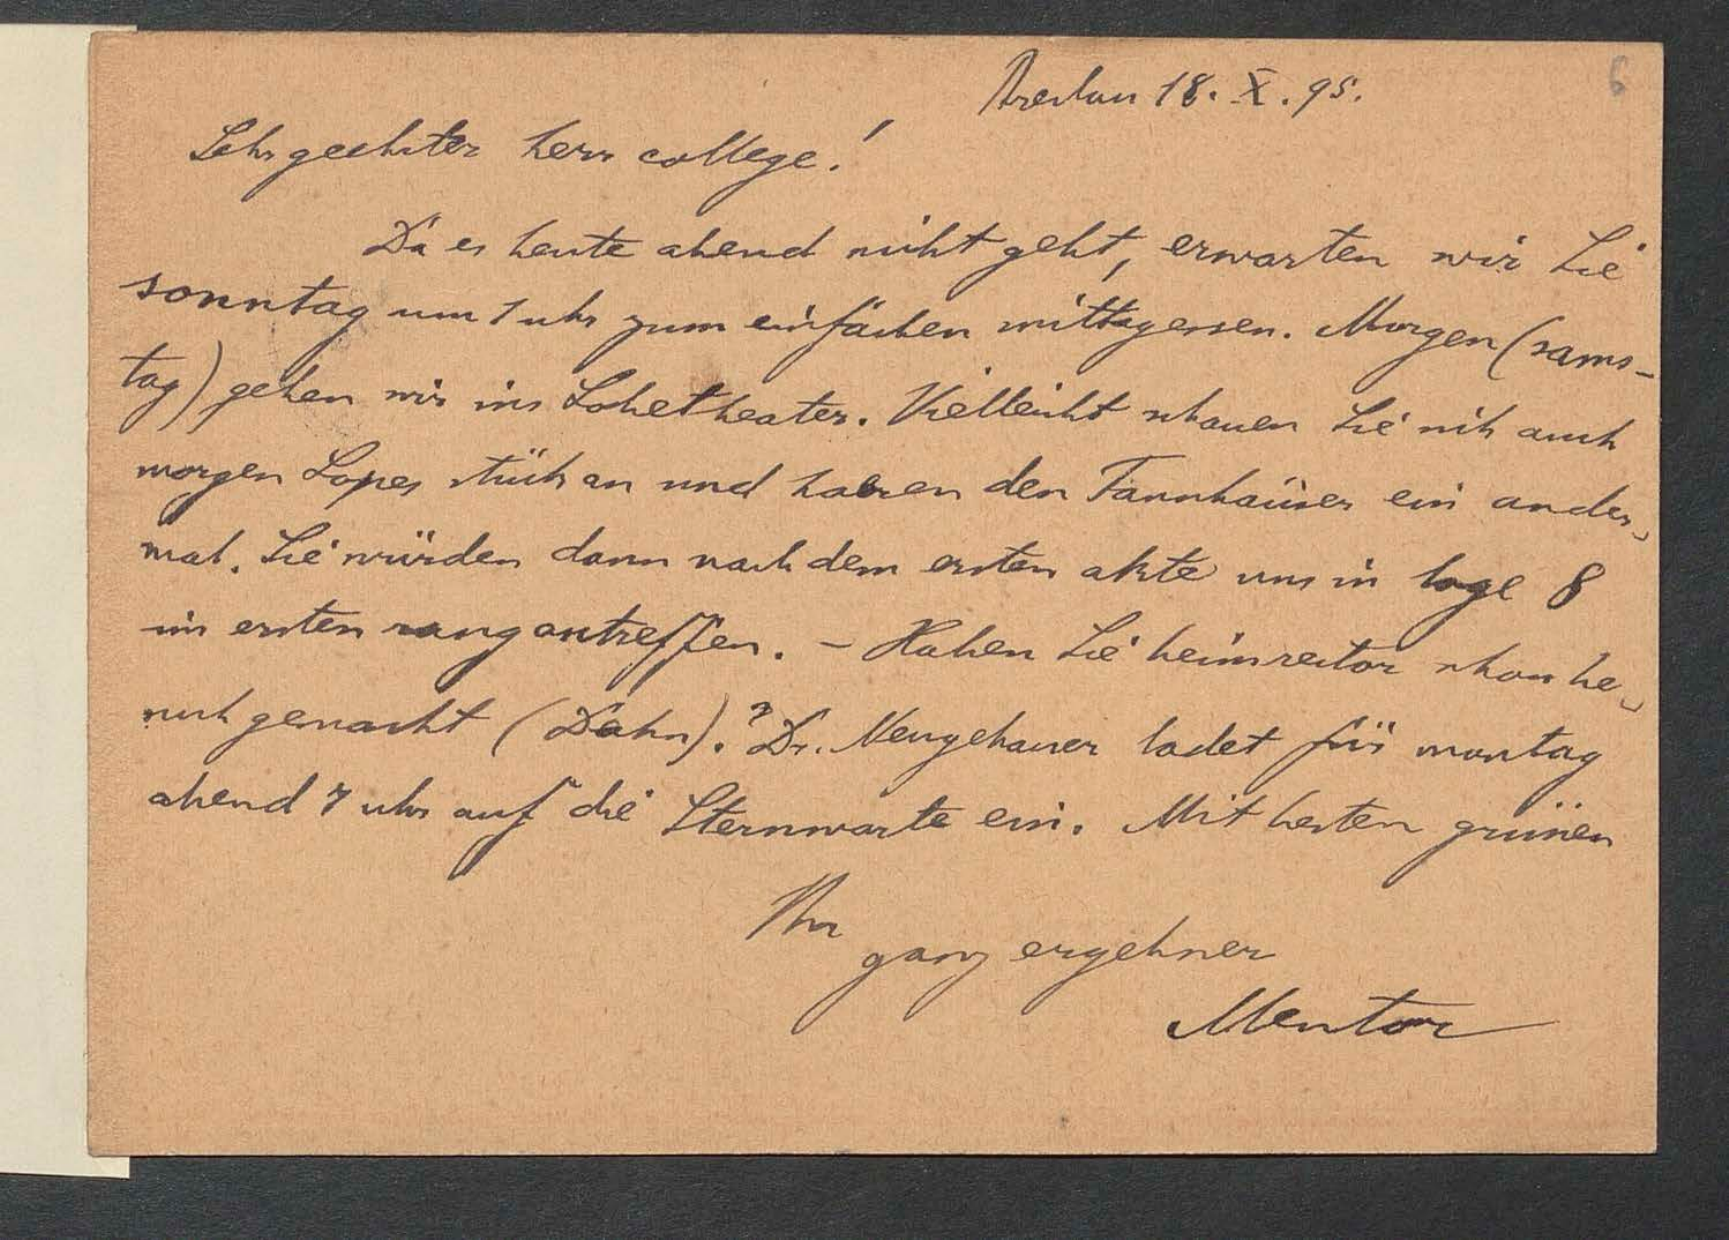 Breslau 18. X. 95.
6
Sehr geehrter herr college!
Da es heute abend nicht geht, erwarten wir Sie
sonntag um 1 uhr zum einfachen mittagessen. Morgen (sams-
tag) gehen wir ins Lobetheater. Vielleicht schauen Sie sich auch
morgen Lopes stück an und hören den Tannhäuser ein ander-
mal. Sie würden dann nach dem ersten akte uns in loge 8
im ersten rang antreffen. – Haben Sie beim rector schon be-
such gemacht (Dahn)? Dr. Neugebauer ladet für montag
abend 7 uhr auf die Sternwarte ein. Mit besten grüssen
Ihr
ganz ergebner
Mentor